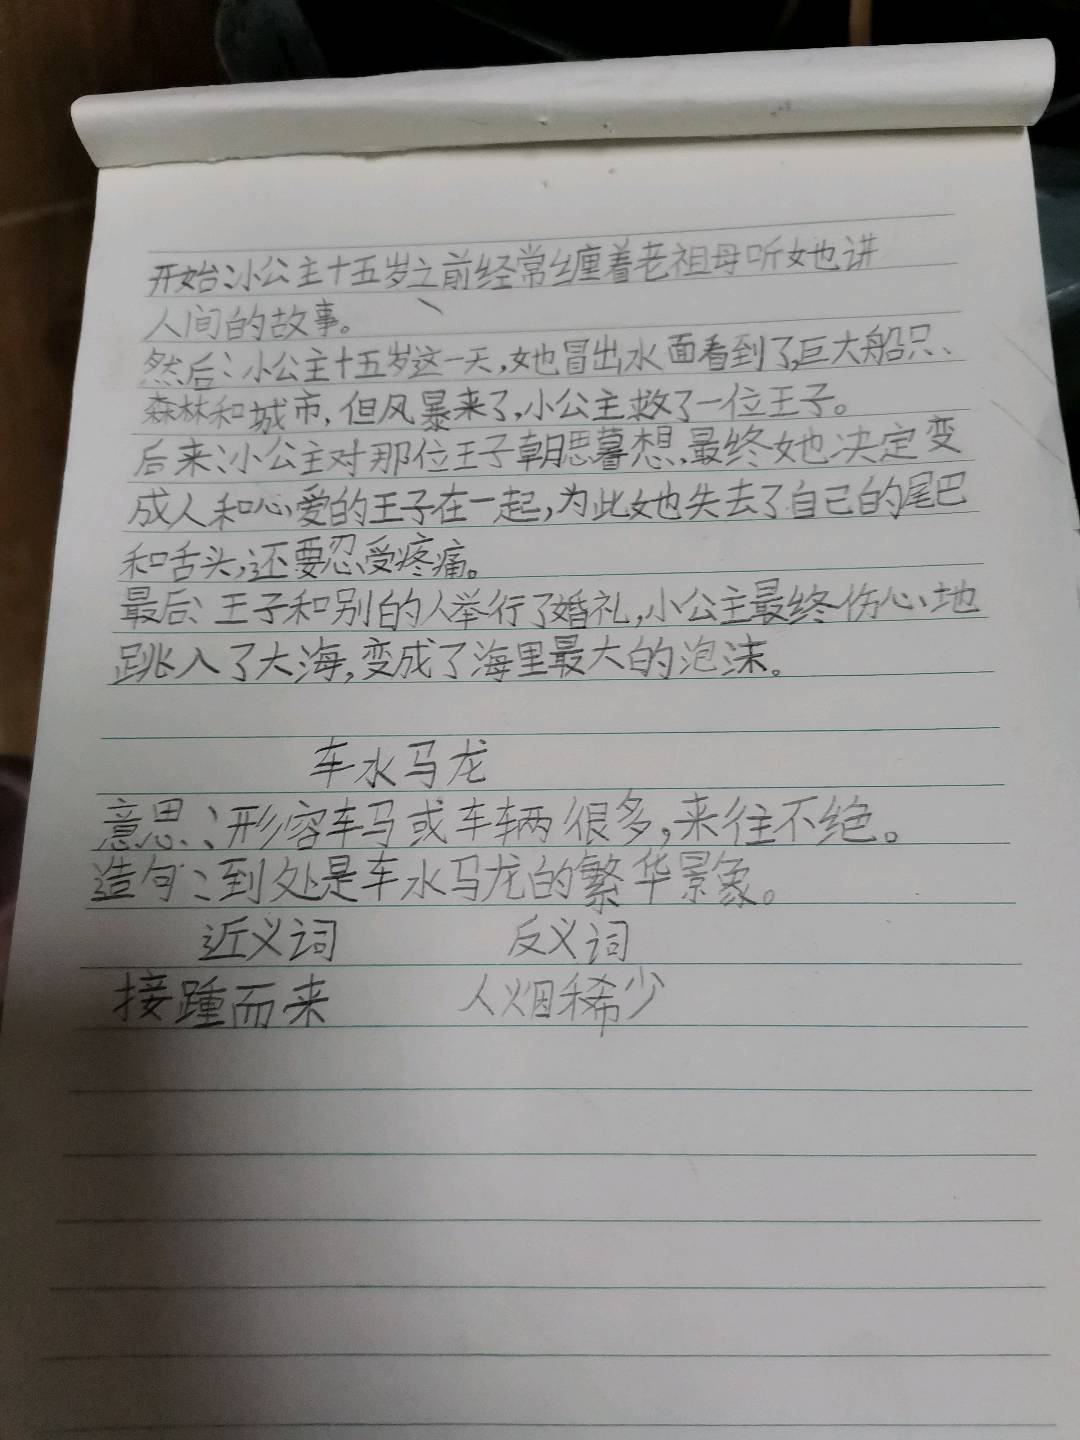 开始:小公主十五岁之前经常缠着老祖母听她讲
人间的故事。
然后:小公主十五岁这一天,她冒出水面看到了巨大船只、
森林和城市,但风暴来了,小公主救了一位王子。
后来:小公主对那位王子朝思暮想,最终她决定变
成人和心爱的王子在一起,为此她失去了自己的尾巴
和舌头,还要忍受疼痛。
最后:王子和别的人举行了婚礼,小公主最终伤心地
跳入了大海,变成了海里最大的泡沫。
车水马龙
意思:形容车马或车辆很多,来往不绝。
造句:到处是车水马龙的繁华景象。
近义词 反义词
接踵而来 人烟稀少